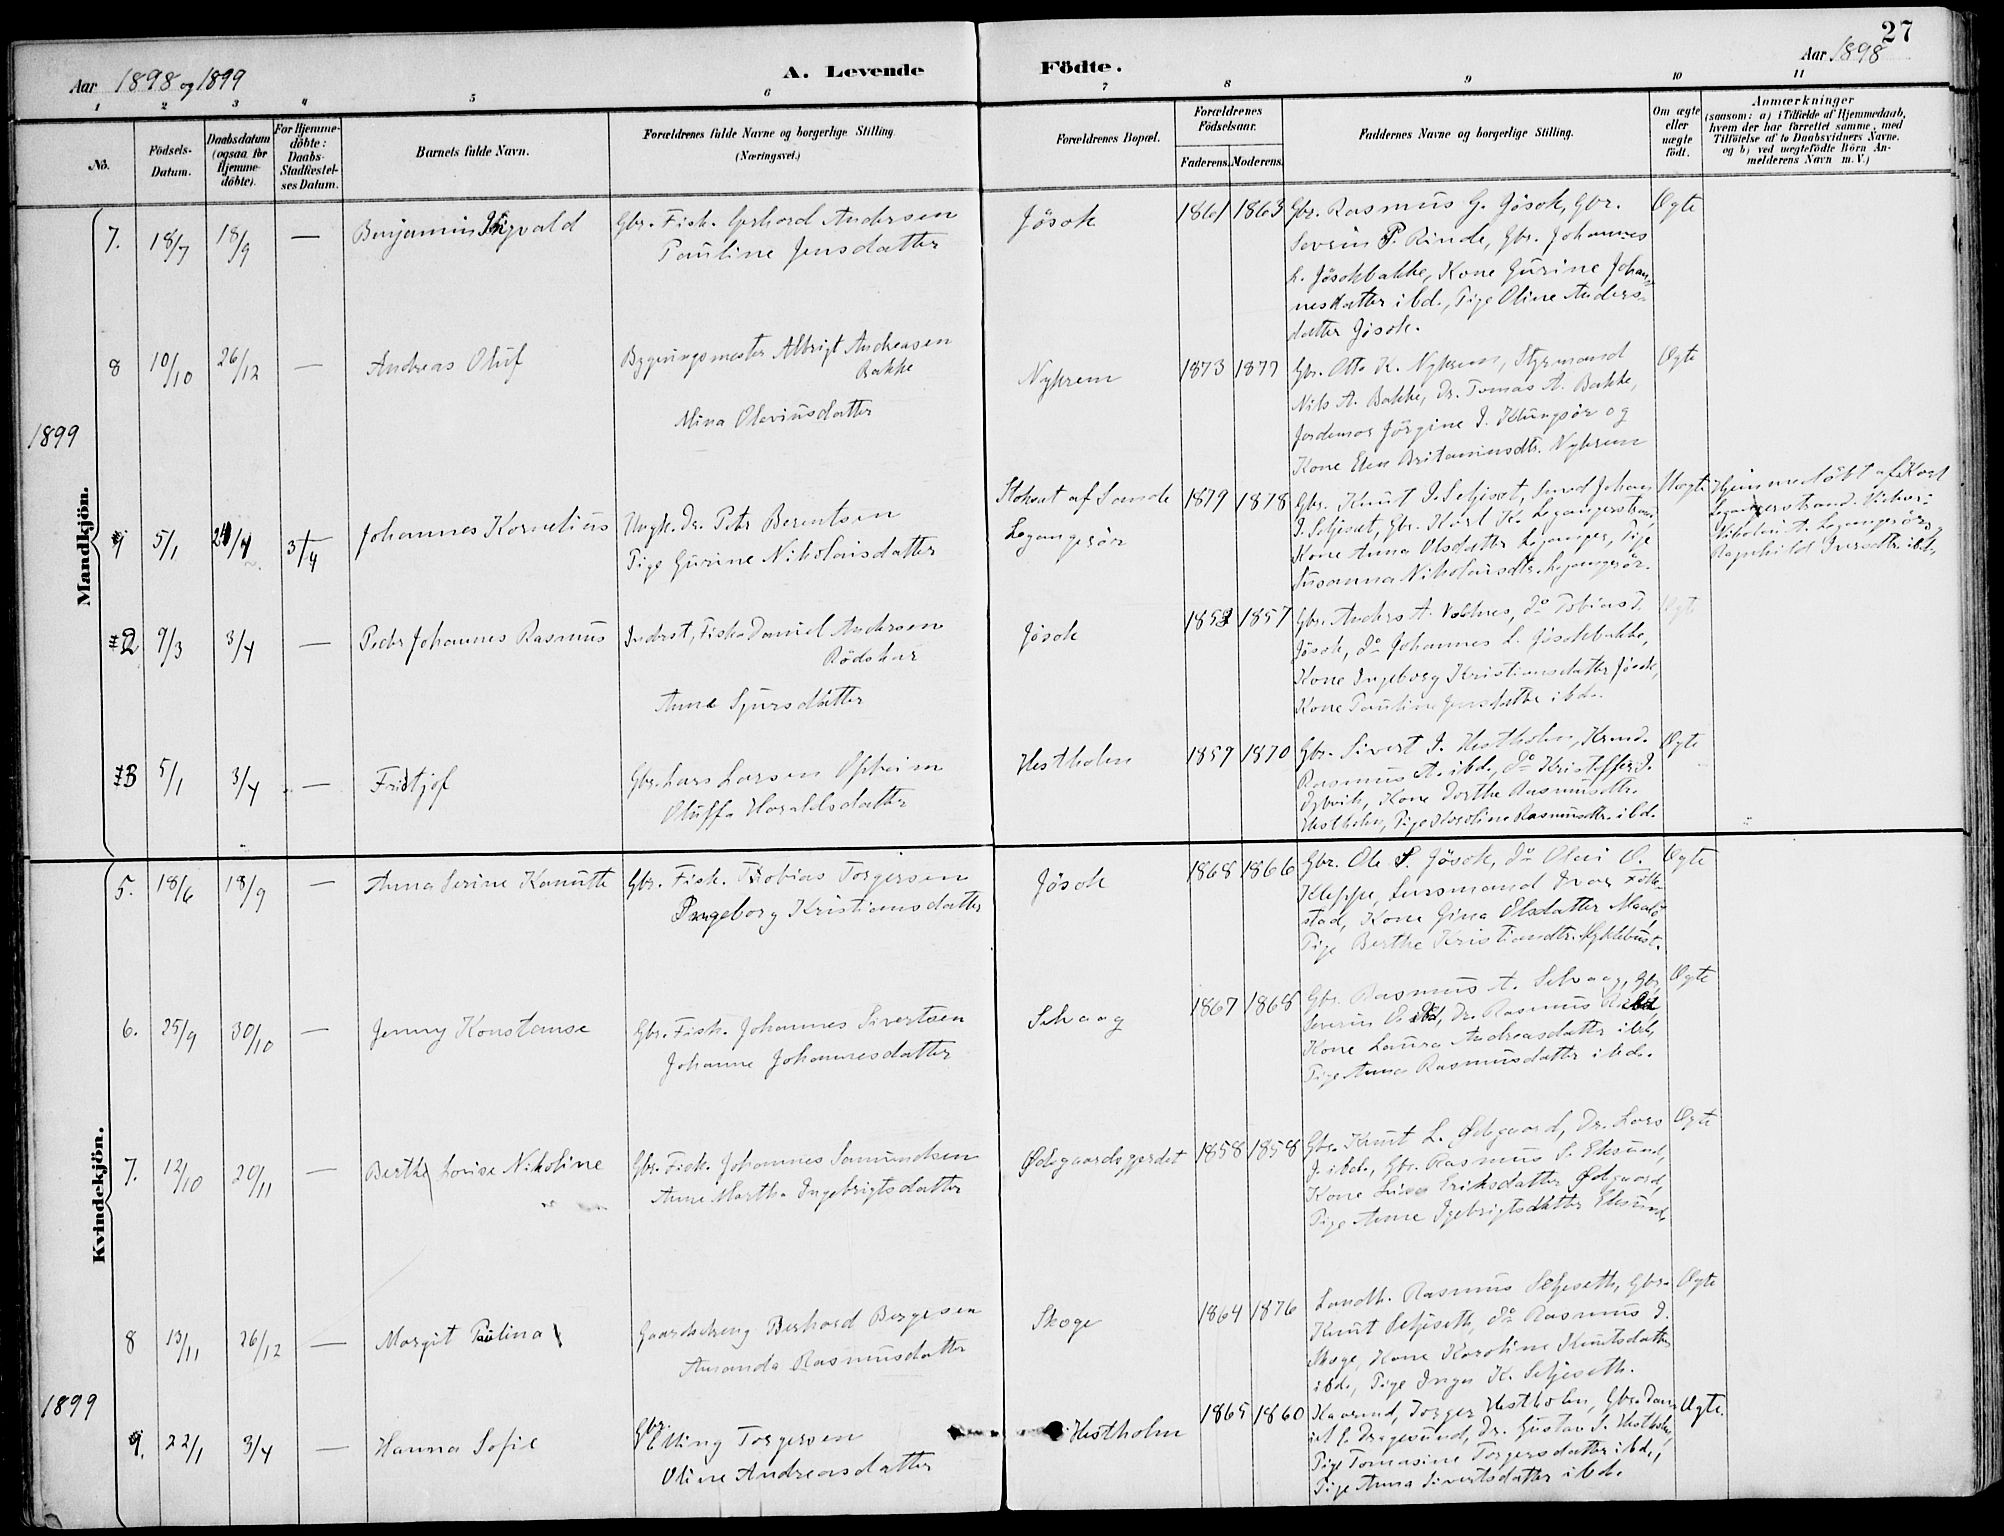 27
Aar 1898 og 1899
A. Levende Födte.
Aar 1898
1 2 3 4 5 6 7 8 9 10 11
No.
Födsels-
Datum.
Daabsdatum
(ogsaa for
Hjemme-
döbte).
For Hjemme-
döbte:
Daabs-
Stadfæstel-
ses Datum.
Barnets fulde Navn.
Forældrenes fulde Navne og borgerlige Stilling.
(Næringsvei.)
Forældrenes Bopæl.
Forældrenes
Födselsaar.
Faderens. Moderens.
Faddernes Navne og borgerlige Stilling.
Om ægte
eller
uægte
födt.
Anmærkninger
(saasom: a) i Tilfælde af Hjemmedaab,
hvem der har forrettet samme, med
Tilföielse af to Daabsvidners Navne.
og b) ved uægtefödte Börn An-
melderens Navn m. V.)
Mandkjön.
7. 18/7 18/9 — Benjamin Ingvald
Gbr. Fisk. Gerhard Andersen
Pauline Jensdatter
Jösok
1861 1863
Gbr. Rasmus G. Jösok, Gbr.
Severin P. Rinde, Gbr. Johannes
L. Jösokbakke, Kone Gurine Johan-
nesdatter ibd., Pige Oline Anders-
datter Jösok.
Ægte
8 10/10 26/12 — Andreas Oluf
Bygningsmester Albrigt Andreasen
Bakke
Mina Oleviusdatter
Nykrem
1873 1877
Gbr. Otto K. Nykrem, Styrmand
Nils A. Bakke, Dr. Tomas A. Bakke,
Jordemor Jörgine I. Klungsör og
Kone Elen Nykrem
Ægte
1899
1 5/1 3/4 Johannes Kornelius
Ungk. Dr. Petr Berentsen
Pige Gurine Nikolaisdatter
Stoksut af Sande
Legangsör
1879 1878
Gbr. Knut I. Seljeset, Smed Johan
I. Seljeset, Gbr. Karl K. Legangerstrand,
Kone Anna Olsdatter Leganger, Pige
Susanna Nikolaisdtr. Legangsör.
Uægte
Hjemmedöbt af Karl
Legangerstrand. Vidner:
Nikolai A. Legangsör og
Ragnhild Iversdtr. ibd.
2 9/3 3/4 — Peder Johannes Rasmus
Inderst, Fisk. Daniel Andersen
Rödskar
Anne Sjursdatter
Jösok
1857
Gbr. Anders A. Voldnes, do Tobias T.
Jösok, do Johannes L. Jösokbakke,
Kone Ingeborg Kristiansdatter Jösok,
Kone Pauline Jensdatter ibd.
Ægte
3 5/1 3/4 — Fridtjof
Gbr. Lars Larsen Opheim
Oluffa Haraldsdatter
Hestholm
1859 1870
Gbr. Sivert I. Hestholm, Kaarmd.
Rasmus A. ibd., do Kristoffer I.
Kone Dorthe Rasmusdtr.
Hestholm, Pige Karoline Rasmusdtr. ibd.
Ægte
Kvindekjön.
5. 18/6 18/9 — Anna Serine Kanutte
Gbr. Fisk. Tobias Torgersen
Ingeborg Kristiansdatter
Jösok
1868 1866
Gbr. Ole S. Jösok, do Olai O.
Kleppe, Lensmand Ivar
stad, Kone Gina Olsdatter Maalö,
Pige Berthe Kristiandtr. Myklebust.
Ægte
6. 25/9 30/10 — Jenny Konstanse
Gbr. Fisk. Johannes Sivertsen
Johanne Johannesdatter
Selvaag
1867 1868
Gbr. Rasmus A. Selvaag, Gbr.
Severin O. ibd, Dr. Rasmus R. ibd
Kone Laura Andreasdatter ibd,
Pige Anna Rasmusdatter ibd.
Ægte
7. 12/10 20/11 — Berthe Lovise Nikoline
Gbr. Fisk. Johannes Samundsen
Anne Martha Ingebrigtsdatter
Ödegaardsgjerdet
1858 1858
Gbr. Knut L. Ödegaard, Dr. Lars
J. ibd., Gbr. Rasmus S. Eksund,
Kone Lina Eriksdatter Ödegaard,
Pige Anne Igebrigtsdatter Eksund.
Ægte
8 13/11 26/12 — Margit Paulina
Gaardsdreng Berhard Bergesen
Amanda Rasmusdatter
Skoge
1864 1876
Landh. Rasmus Seljeseth, Gbr.
Knut Seljeseth, do Rasmus J.
Skoge, Kone Karoline Knutsdatter
ibd., Pige Inger K. Seljeseth.
Ægte
1899
1. 22/1 3/4 — Hanna Sofie
Gbr. Elling Torgersen
Oline Andreasdatter
Hestholm
1865 1860
Kaarmd. Torger Hestholm, Gbr. Dan-
iel P. Dragesund, Dr. Gustav S. Hestholm,
Pige Tomasine Torgersdatter ibd.,
Pige Anna Sivertsdatter ibd.
Ægte.